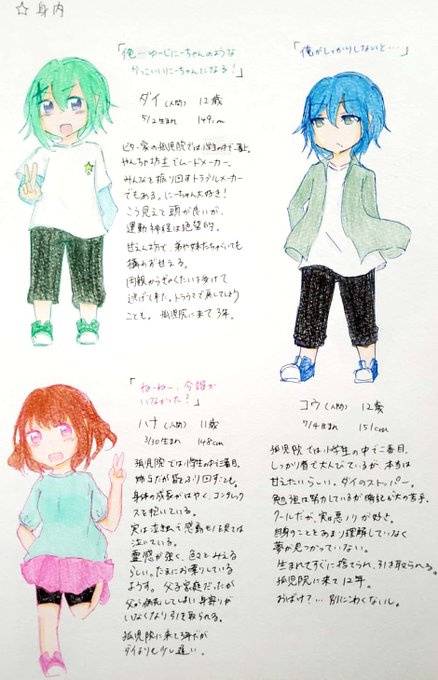 ☆身内
「俺…ゆーじにーちゃんのような
かっこいいにーちゃんになる!」
ダイ(人間) 12歳
5/2生まれ 149cm
ピター家の孤児院では小学生の中で一番上。
やんちゃ坊主でムードメーカー。
みんなを振り回すトラブルメーカー
でもある。にーちゃん大好き!
こう見えて頭が良いが、
運動神経は絶望的。
甘えん坊で、弟や妹たちがいても
構わず甘える。
両親からぎゃくたいを受けて
逃げて来た。トラウマで
ことも。孤児院に来て3年。
「俺がしっかりしないと…」
コウ(人間) 12歳
7/4生まれ 151cm
孤児院では小学生の中で二番目。
しっかり者で大人びているが、本当は
甘えたいらしい。ダイのストッパー。
勉強は努力しているが暗記が大の苦手。
クールだが、実は悪ノリが好き。
自身のことをあまり理解していなく
夢が見つかっていない。
生まれてすぐに捨てられ、引き取られる。
孤児院に来て12年。
おばけ?…別にこわくないし。
「ねーねー、今誰か
いなかった?」
ハナ(人間) 11歳
3/30生まれ 148cm
孤児院では小学生の中で三番目。
姉らだが皆より回すことも。
身体の成長がはやく、コンプレックス
を抱いている。
実は泣き虫で感動モノを見ては
泣いている。
霊感が強く、色々とみえる
らしい。たまにお喋りしている
ようす。父子家庭だったが
父が病死してしまい身寄りが
いなくなり引き取られる。
孤児院に来て3年だが
ダイよりも少し遅い。